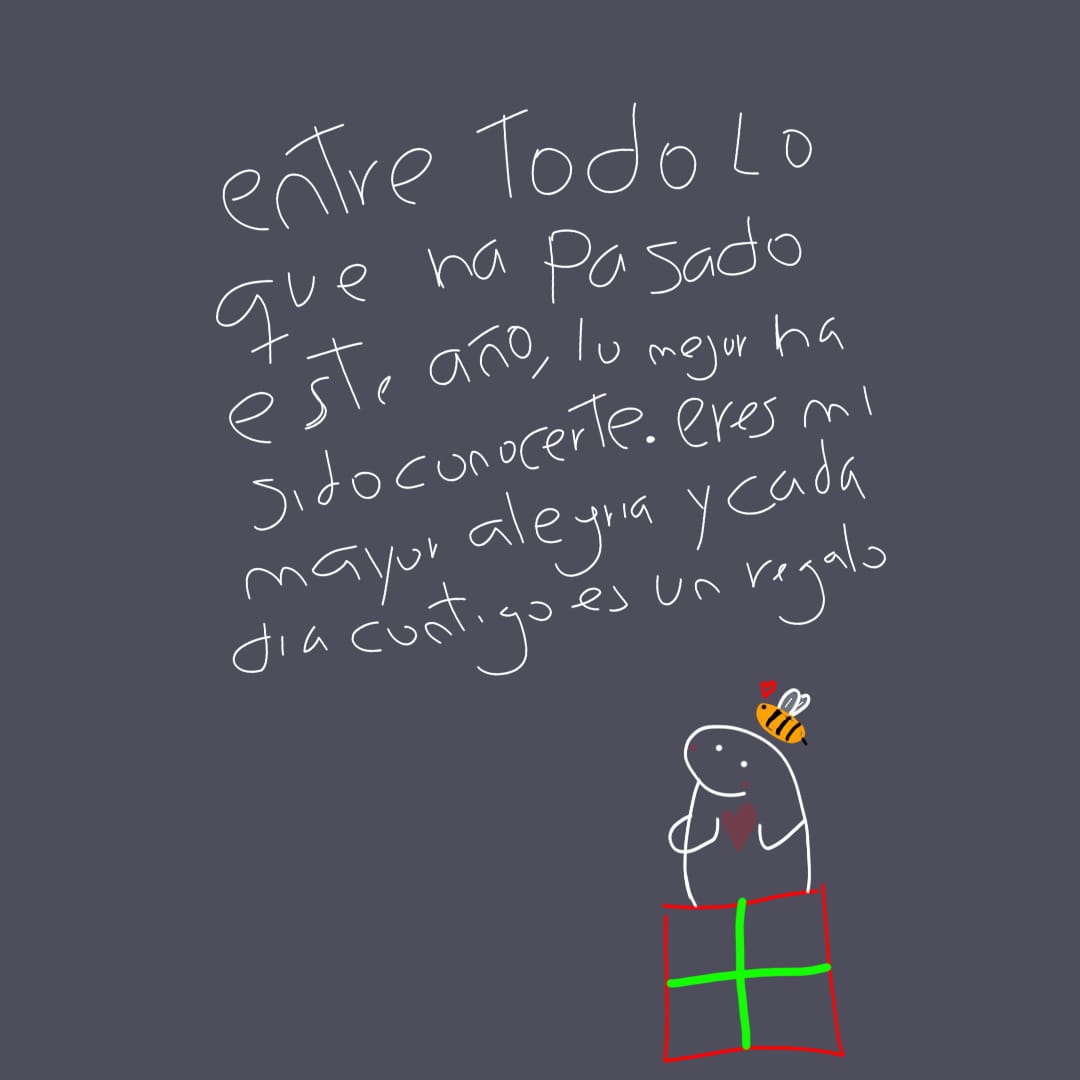 entre Todo Lo
que ha pasado
este año, lo mejor ha
sido conocerte. eres mi
mayor alegria y cada
dia contigo es un regalo